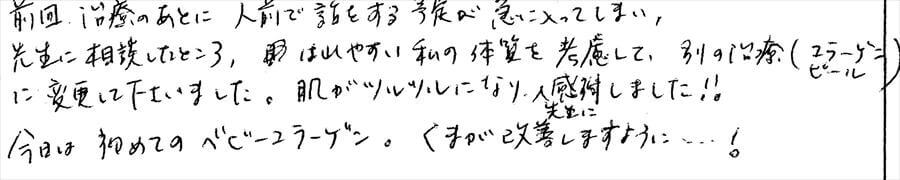 前回、治療のあとに 人前で話をする予定が 急に入ってしまい,
先生に相談したところ, 出やすい 私の体質を考慮して、別の治療(コラーゲンピール)
に変更して下さいました。肌がツルツルになり、先生に感謝しました!!
今日は 初めての ベビーコラーゲン。くまが改善しますように…!